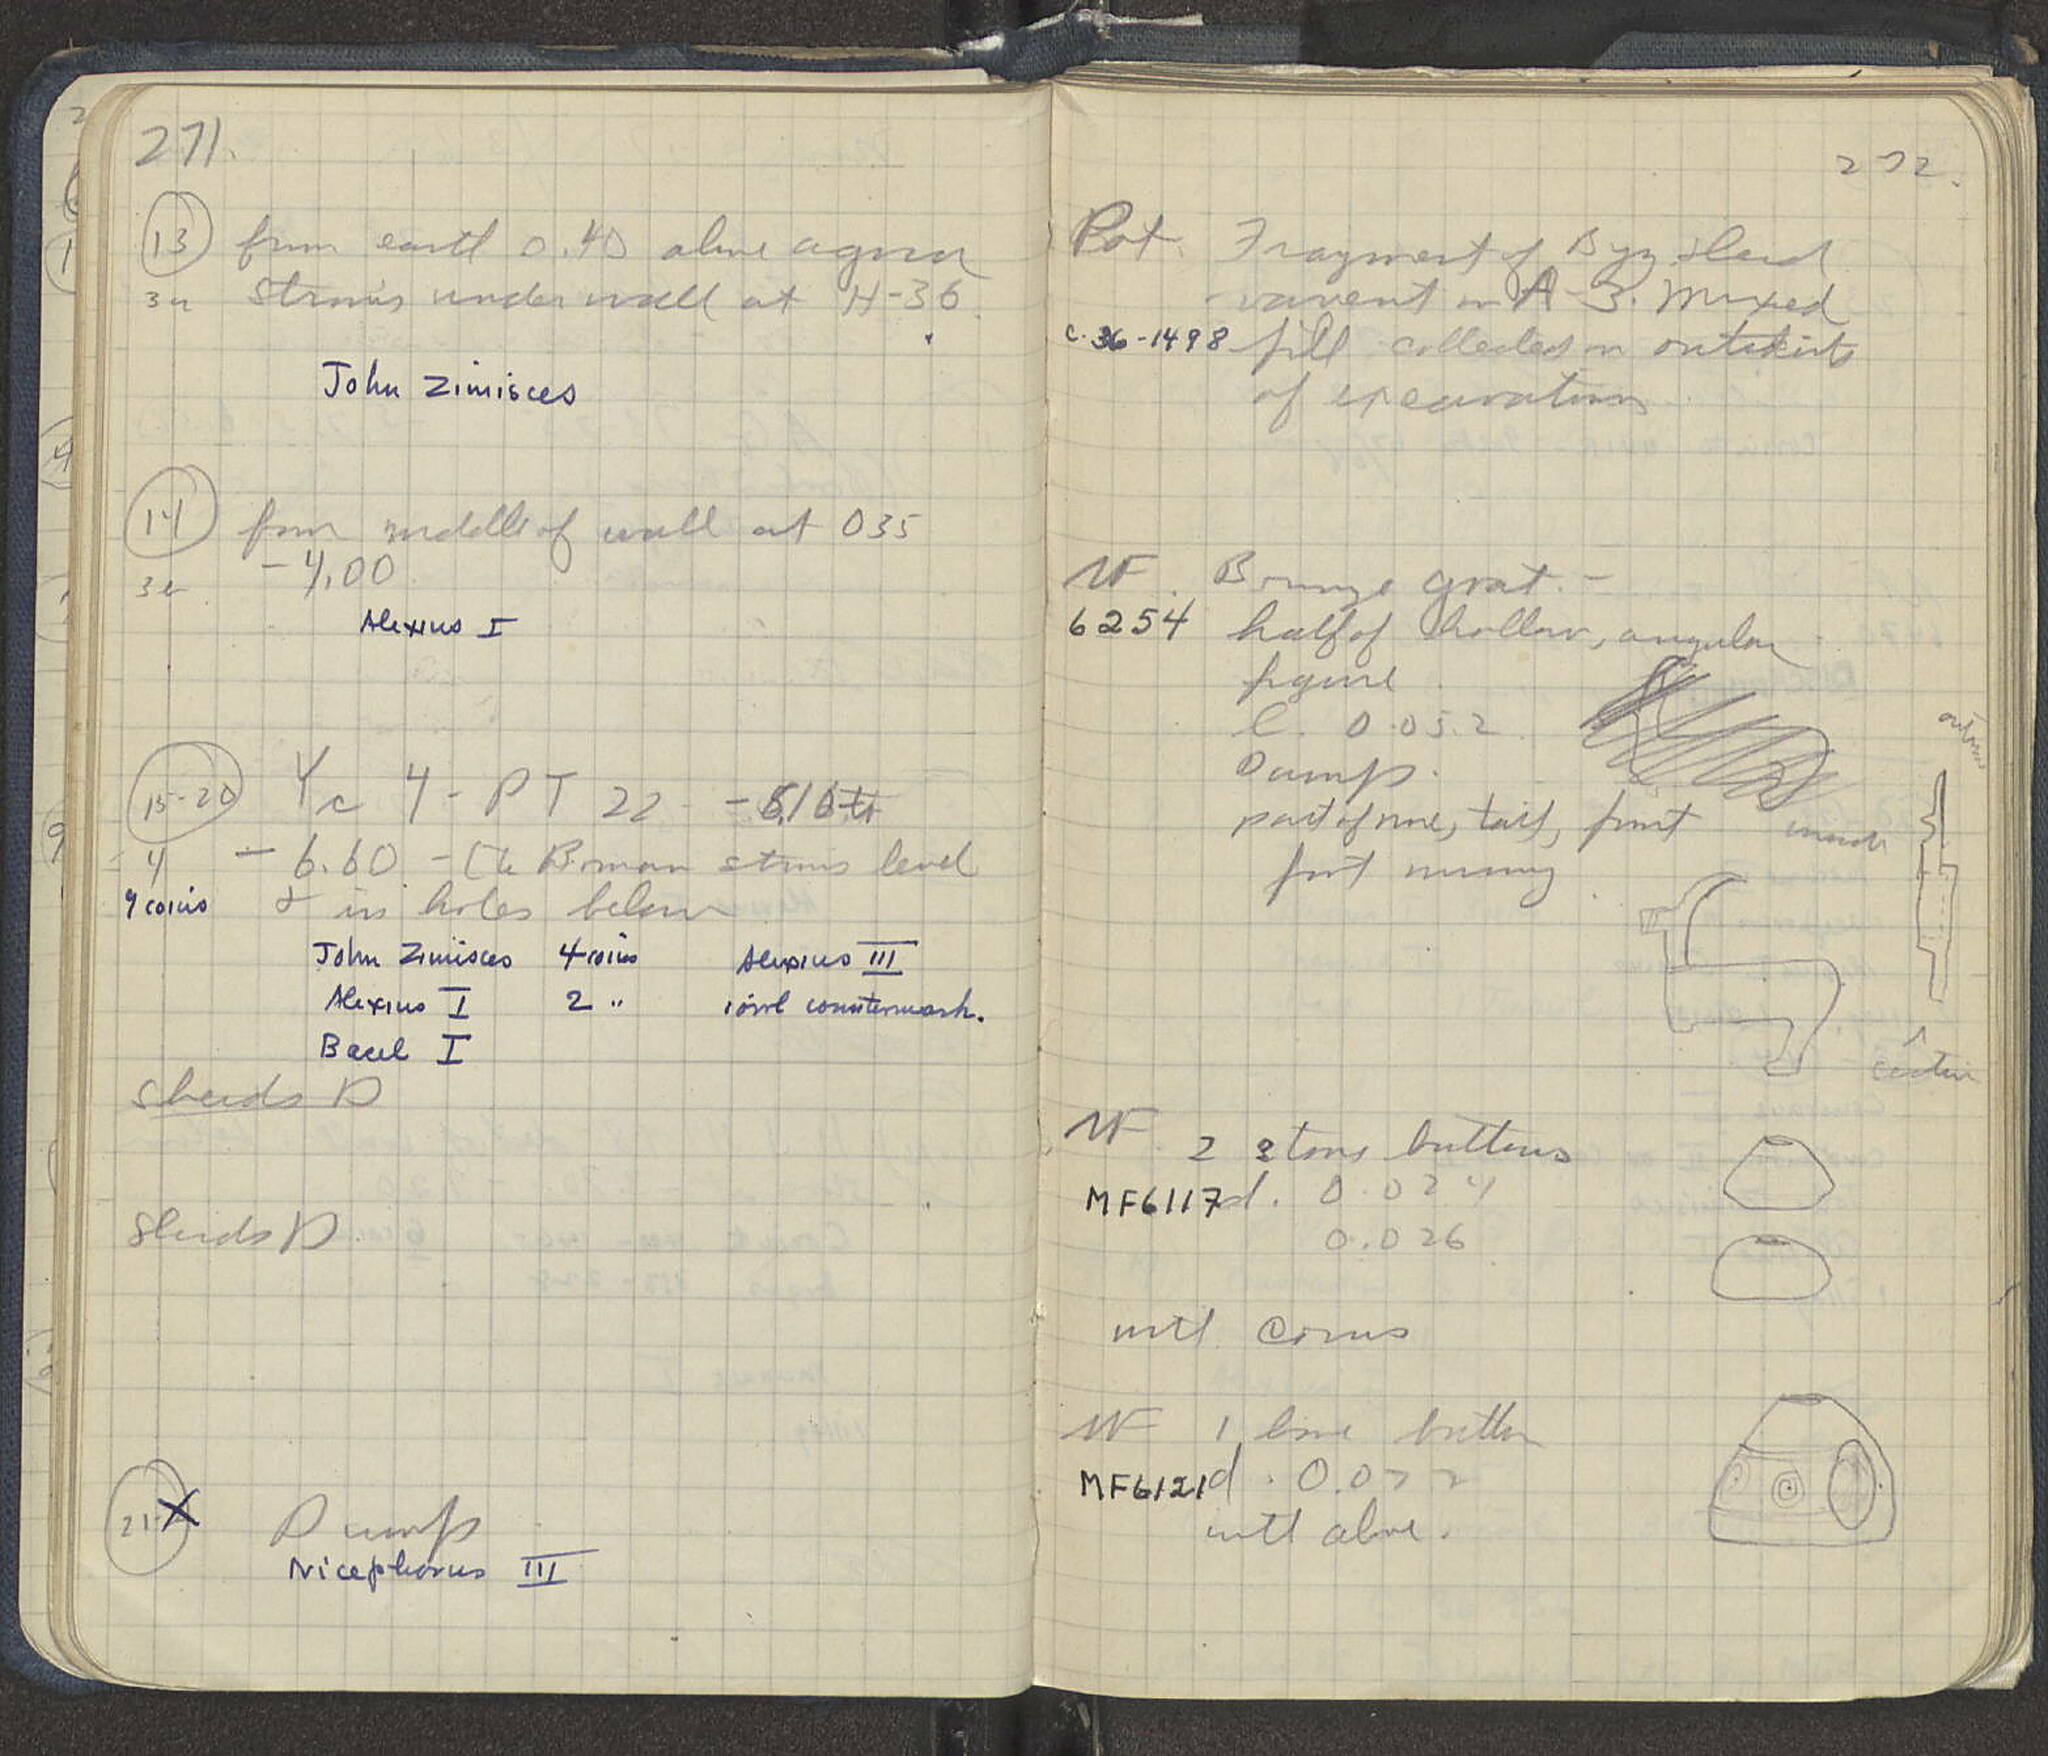 271.
13 from earth 0.40 above agora
stroses under wall at H-36.
John Zimisces
14 from middle of wall at O35
- 4.00
Alexius I
15-20 4 - PT 22
4 - 6.60 - Roman level
9 coins & in holes below
John Zimisces 4 coins Alexius III
Alexius I 2 " countermark.
Basel I
Sherds D
Sherds D
21 X Dump
Nicephorus III
272.
Pot. Fragment of Byz. sherd
in A - 3. Mixed
C. 36-1498 fill collected on outskirts
of excavations
MF. Bronze goat. -
6254 half of hollow, angular
figure
l. 0.052
Dump.
part of nose, tail, front
foot missing
outside
inside
section
MF. 2 stone buttons
MF6117 d. 0.024
0.026
with coins
MF 1 bone button
MF6121 d. 0.022
with above.